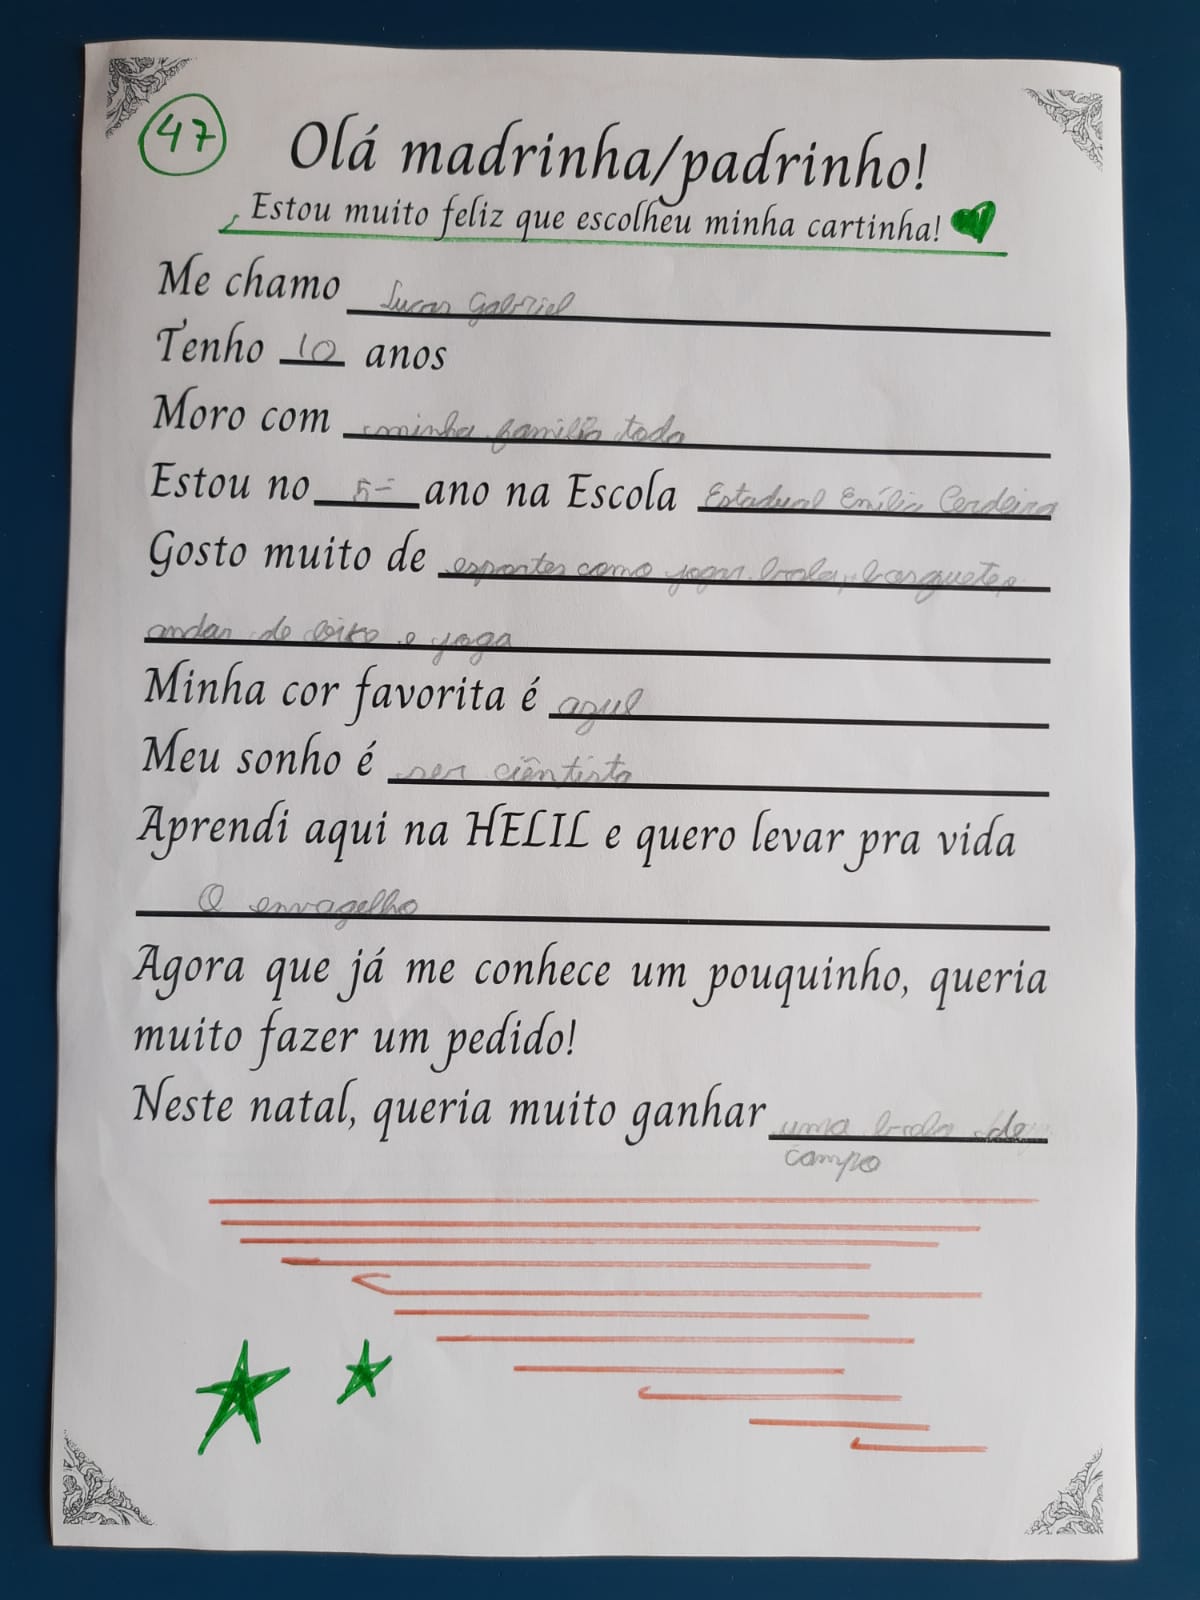 47
Olá madrinha/padrinho!
Estou muito feliz que escolheu minha cartinha!
Me chamo Lucas Gabriel
Tenho 10 anos
Moro com minha família toda
Estou no 5º ano na Escola Estadual Emília Cerdeira
Gosto muito de esportes como jogar bola, basquete,
andar de bike e yoga
Minha cor favorita é azul
Meu sonho é ser ciêntista
Aprendi aqui na HELIL e quero levar pra vida
O envagelho
Agora que já me conhece um pouquinho, queria
muito fazer um pedido!
Neste natal, queria muito ganhar uma bola de
campo